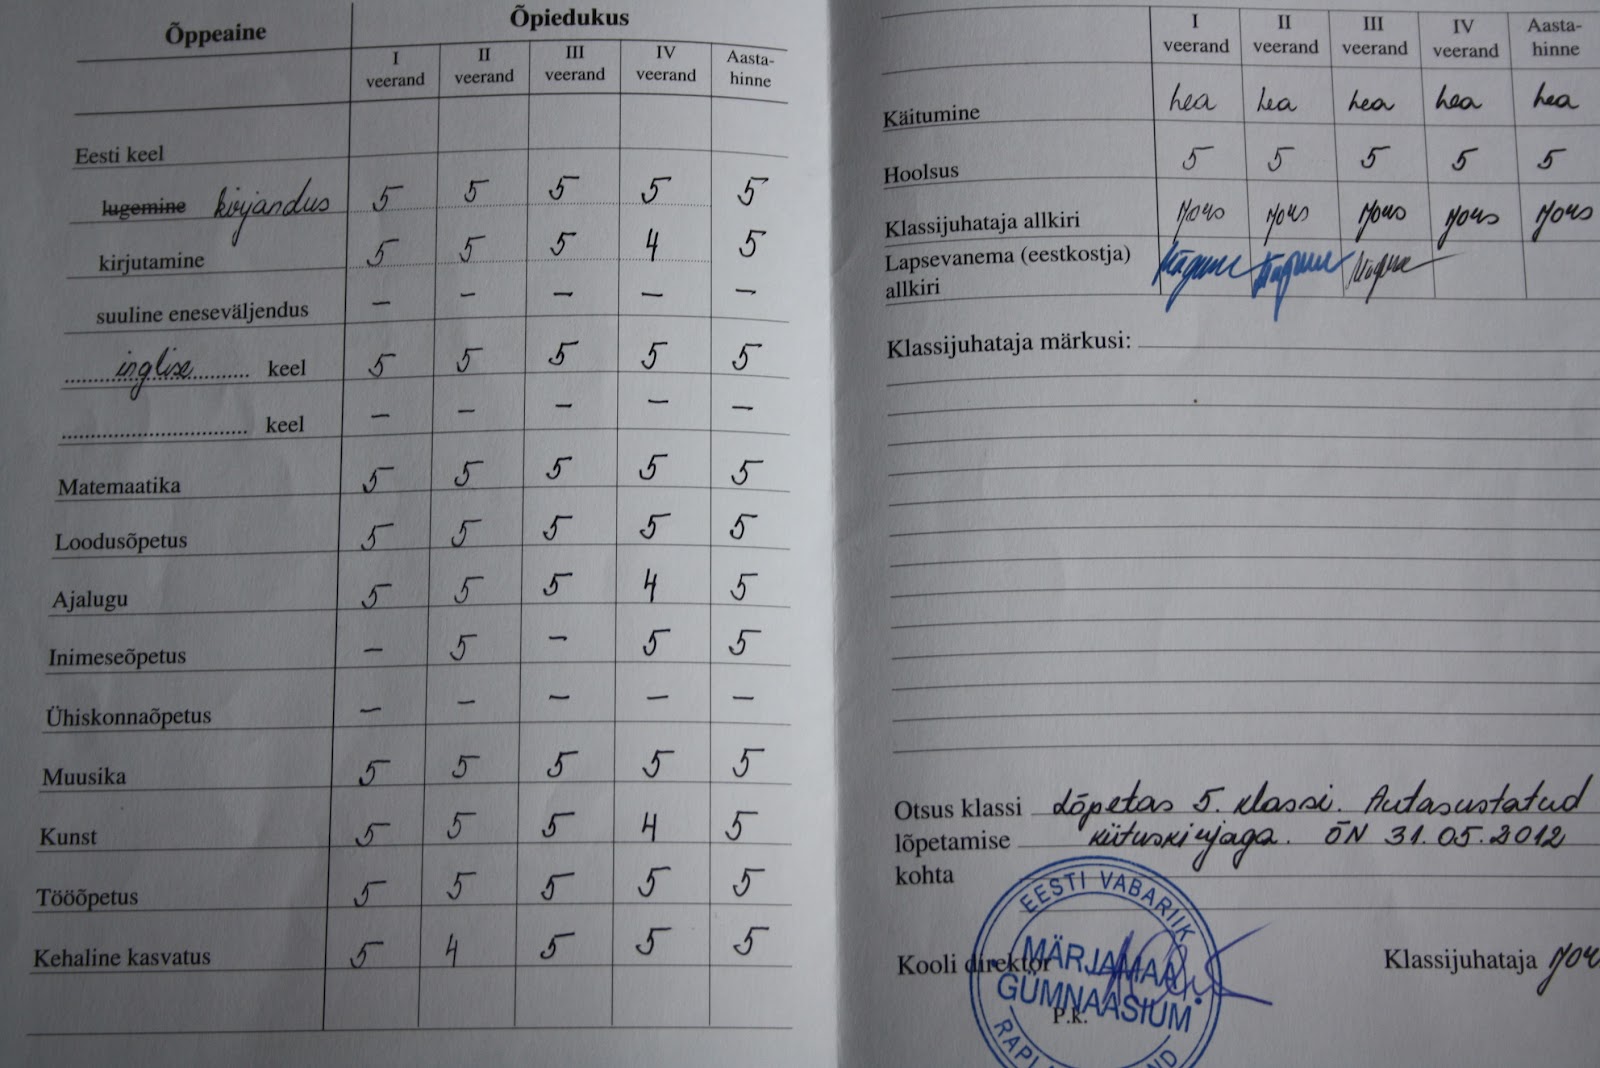 Õppeaine Õpiedukus
I veerand II veerand III veerand IV veerand Aasta-hinne
Eesti keel
lugemine kirjandus 5 5 5 5 5
kirjutamine 5 5 5 4 5
suuline eneseväljendus – – – – –
inglise keel 5 5 5 5 5
keel – – – – –
Matemaatika 5 5 5 5 5
Loodusõpetus 5 5 5 5 5
Ajalugu 5 5 5 4 5
Inimeseõpetus – 5 – 5 5
Ühiskonnaõpetus – – – – –
Muusika 5 5 5 5 5
Kunst 5 5 5 4 5
Tööõpetus 5 5 5 5 5
Kehaline kasvatus 5 4 5 5 5
I veerand II veerand III veerand IV veerand Aasta-hinne
Käitumine hea hea hea hea hea
Hoolsus 5 5 5 5 5
Klassijuhataja allkiri
Lapsevanema (eestkostja)
allkiri
Klassijuhataja märkusi:
Otsus klassi Lõpetas 5. klassi. Autasustatud
lõpetamise kiituskirjaga. ÕN 31.05.2012
kohta
Kooli direktor Klassijuhataja
P.k.
EESTI VABARIIK
MÄRJAMAA
GÜMNAASIUM